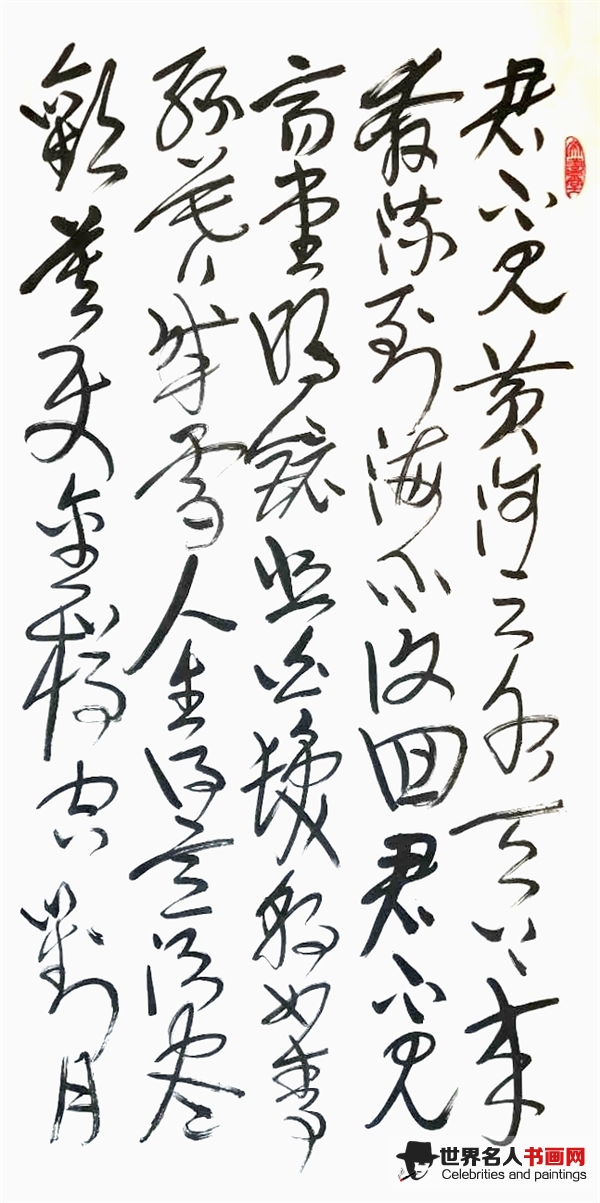 君不見黃河之水天上来
奔流到海不復回君不見
高堂明鏡悲白髮朝如青
絲暮成雪人生得意須尽
歡莫使金樽空對月
世界名人书画网
Celebrities and paintings